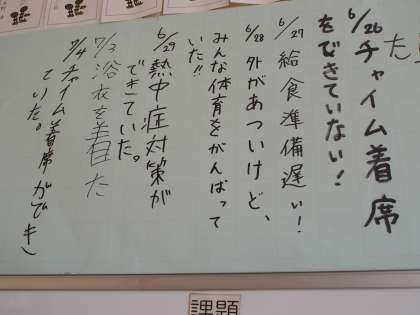 た
6/26チャイム着席
をできていない!
6/27 給食準備遅い!
6/28 外があついけど、
みんな体育をがんばって
いた!!
6/29 熱中症対策が
できていた。
7/3 浴衣を着た
7/4 チャイム着席ができ
ていた。
課題